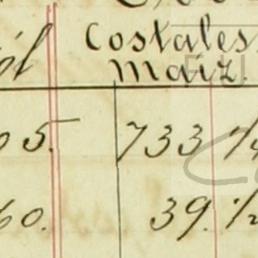 Costales
Maiz.
05. 733 1/4
60. 39. 1/2